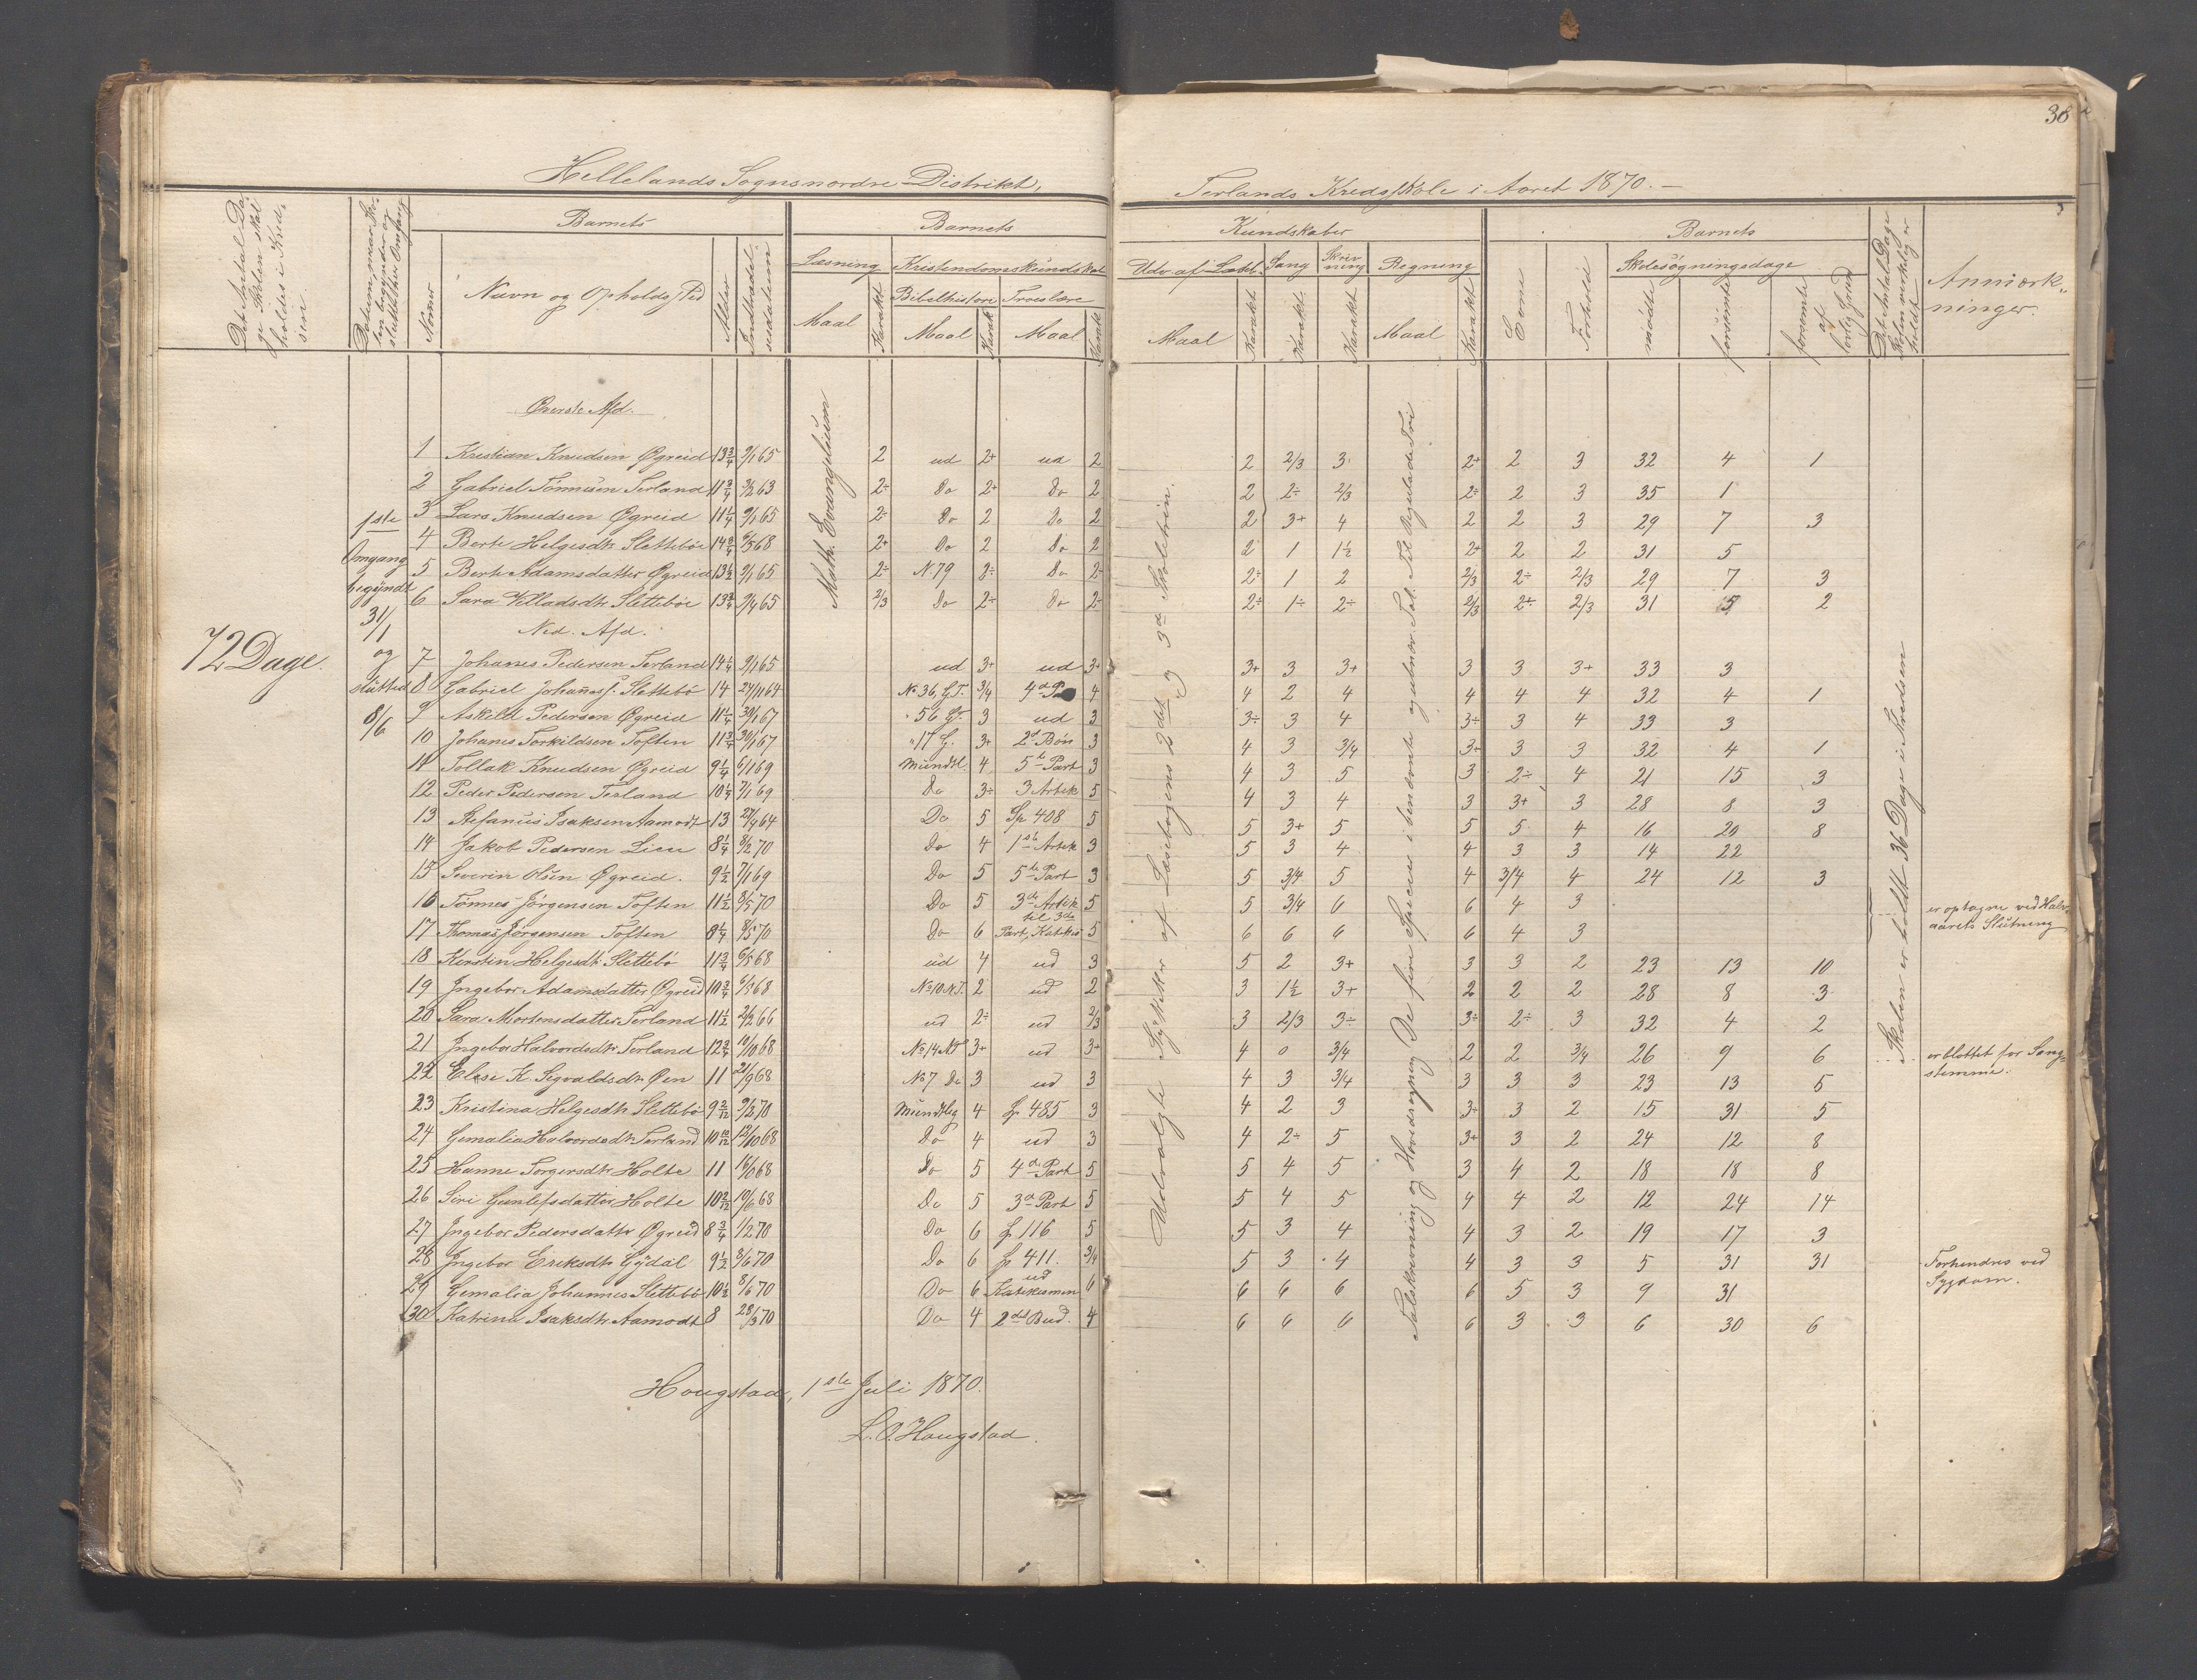 38
Hellelands Sognsnordre Distrikt,
Terlands Kredsskole i Aaret 1870.
Det Antal Dage Skolen skal holdes i Kredsen.
Datum, naar Skolen begynder og slutter hver Omgang
Barnets
Nomer
Navn og Opholdssted
Alder
Indtrædelsesdatum
Barnets
Læsning
Maal
Karakt
Kristendomskundskab
Bibelhistorie
Maal
Karakt
Troeslære
Maal
Karakt
Kundskaber
Udv. af Læseb.
Maal
Karakt
Sang
Karakt.
Skrivning
Karakt
Regning
Maal
Karakt
Barnets
Evne
Forhold
Skolesøgningsdage
mødte
forsømte
forsømte af lovlig Grund
Det Antal Dage Skolen virkelig er holdt
Anmærkninger.
72 Dage.
1ste Omgang begyndt 31/1 og slutted 8/6
Math. Evangelium
Udvalgte Stykker af Læsebogens 2det og 3de Skoletrin.
Talskrivning og Hovedregning De fire Species i benævnte og ubnæv. Tal. Til Regulade Tri
Skolen er holdt 36 Dage i Kredsen
Øverste Afd.
1 Kristian Knudsen Øgreid 13 3/4 9/1 65 2 ud 2+ ud 2 2 2/3 3 2+ 2 3 32 4 1
2 Gabriel Tønnesen Terland 11 3/4 3/2 63 2÷ Do 2+ Do 2 2 2÷ 2/3 2÷ 2 3 35 1
3 Lars Knudsen Øgreid 11 1/4 9/1 65 2÷ Do 2 Do 2 2 3+ 4 2 2 3 29 7 3
4 Berte Helgesdtr Slettebøe 14 3/4 6/5 68 2+ Do 2 Do 2 2 1 1½ 2+ 2 2 31 5
5 Berte Adamsdatter Øgreid 13½ 9/1 65 2÷ N. 79 2÷ Do 2÷ 2÷ 1 2 2/3 2÷ 2/3 29 7 3
6 Sara Villadsdtr Slettebøe 13 3/4 9/4 65 2/3 Do 2÷ Do 2÷ 2÷ 1÷ 2÷ 2/3 2÷ 2/3 31 5 2
Ned. Afd.
7 Johannes Pedersen Terland 14 1/4 9/1 65 ud 3+ ud 3+ 3+ 3 3+ 3 3 3+ 33 3
8 Gabriel Johanness. Slettebø 14 24/11 64 No 36, G.T. 3/4 4de P 4 4 2 4 4 4 4 32 4 1
9 Askild Pedersen Øgreid 11 1/4 30/1 67 " 56 G. 3 ud 3 3÷ 3 4 3÷ 3 4 33 3
10 Johanes Torkildsen Toften 11 3/4 30/1 67 " 17 G. 3+ 2d Bøn 3 4 3 3/4 3+ 3 3 32 4 1
11 Tollak Knudsen Øgreid 9 1/4 6/1 69 Mundtl. 4 5te Part 3 4 3 5 3 2÷ 4 21 15 3
12 Peder Pedersen Terland 10 1/4 7/1 69 Do 3÷ 3 Artik 5 4 3 4 3 3+ 3 28 8 3
13 Stefanus Isaksen Aamodt 13 27/4 64 Do 5 Sp 408 5 5 3+ 5 5 5 4 16 20 8
14 Jakob Pedersen Lien 8 1/4 8/2 70 Do 4 1ste Artik 3 5 3 4 4 3 3 14 22
15 Severin Olsen Øgreid. 9½ 7/1 69 Do 5 5te Part 3 5 3/4 5 4 3/4 4 24 12 3
16 Tønnes Jørgensen Toften 11½ 3/5 70 Do 5 3die Artik 5 5 3/4 6 6 4 3 er optagne ved Halv-
17 Thomas Jørgensen Toften 8 1/4 3/5 70 Do 6 til 3die Part, Katekis 5 6 6 6 6 4 3 aarets Slutning
18 Kirsten Helgesdtr Slettebø 11 3/4 6/5 68 ud 4 ud 3 5 2 3+ 3 3 2 23 13 10
19 Ingebor Adamsdatter Øgreid 10 3/4 6/5 68 No 10 N.T. 2 ud 2 3 1½ 3+ 2 2 2 28 8 3
20 Sara Mortensdatter Terland 11½ 2/2 66 ud 2÷ ud 2/3 3 2/3 3÷ 3÷ 2÷ 3 32 4 2
21 Ingebor Halvordsdtr Terland 12 3/4 10/10 68 No 14 NT 3+ ud 3+ 4 0 3/4 2 2 3/4 26 9 6 er blottet for Sangstemme.
22 Elese K. Segvaldsdtr Øen 11 21/9 68 No 7 Do 3 ud 3 4 3 3/4 3 3 3 23 13 5
23 Kristina Helgesdtr Slettebø 9 2/12 9/2 70 Mundtlig 4 Sp 485 3 4 2 3 3+ 3 2 15 31 5
24 Gemalia Halvordsdtr Terland 10 10/12 12/10 68 Do 4 ud 3 4 2÷ 5 3+ 3 2 24 12 8
25 Hanne Torgersdtr Holte 11 16/10 68 Do 5 4de Part 5 5 4 5 3 4 2 18 18 8
26 Siri Gunlefsdatter Holte 10 2/12 10/6 68 Do 5 3d Part 5 5 4 5 4 4 2 12 24 14
27 Ingebor Pedersdattr Øgreid 8 3/4 1/2 70 Do 6 Sp 116 5 5 3 4 4 3 2 19 17 3
28 Ingebor Eriksdtr Gydal 9½ 3/6 70 Do 6 Sp 411. 3/4 5 3 4 4 3 3 5 31 31 Forhindres ved Sygdom.
29 Gemalia Johannes Slettebø 10½ 8/6 70 Do 6 ud Katekismen 6 6 6 6 6 5 3 9 31
30 Katrine Isaksdtr Aamodt 8 28/3 70 Do 4 2det Bud. 4 6 6 6 6 3 3 6 30 6
Hougstad, 1ste Juli 1870.
L. O. Hougstad.